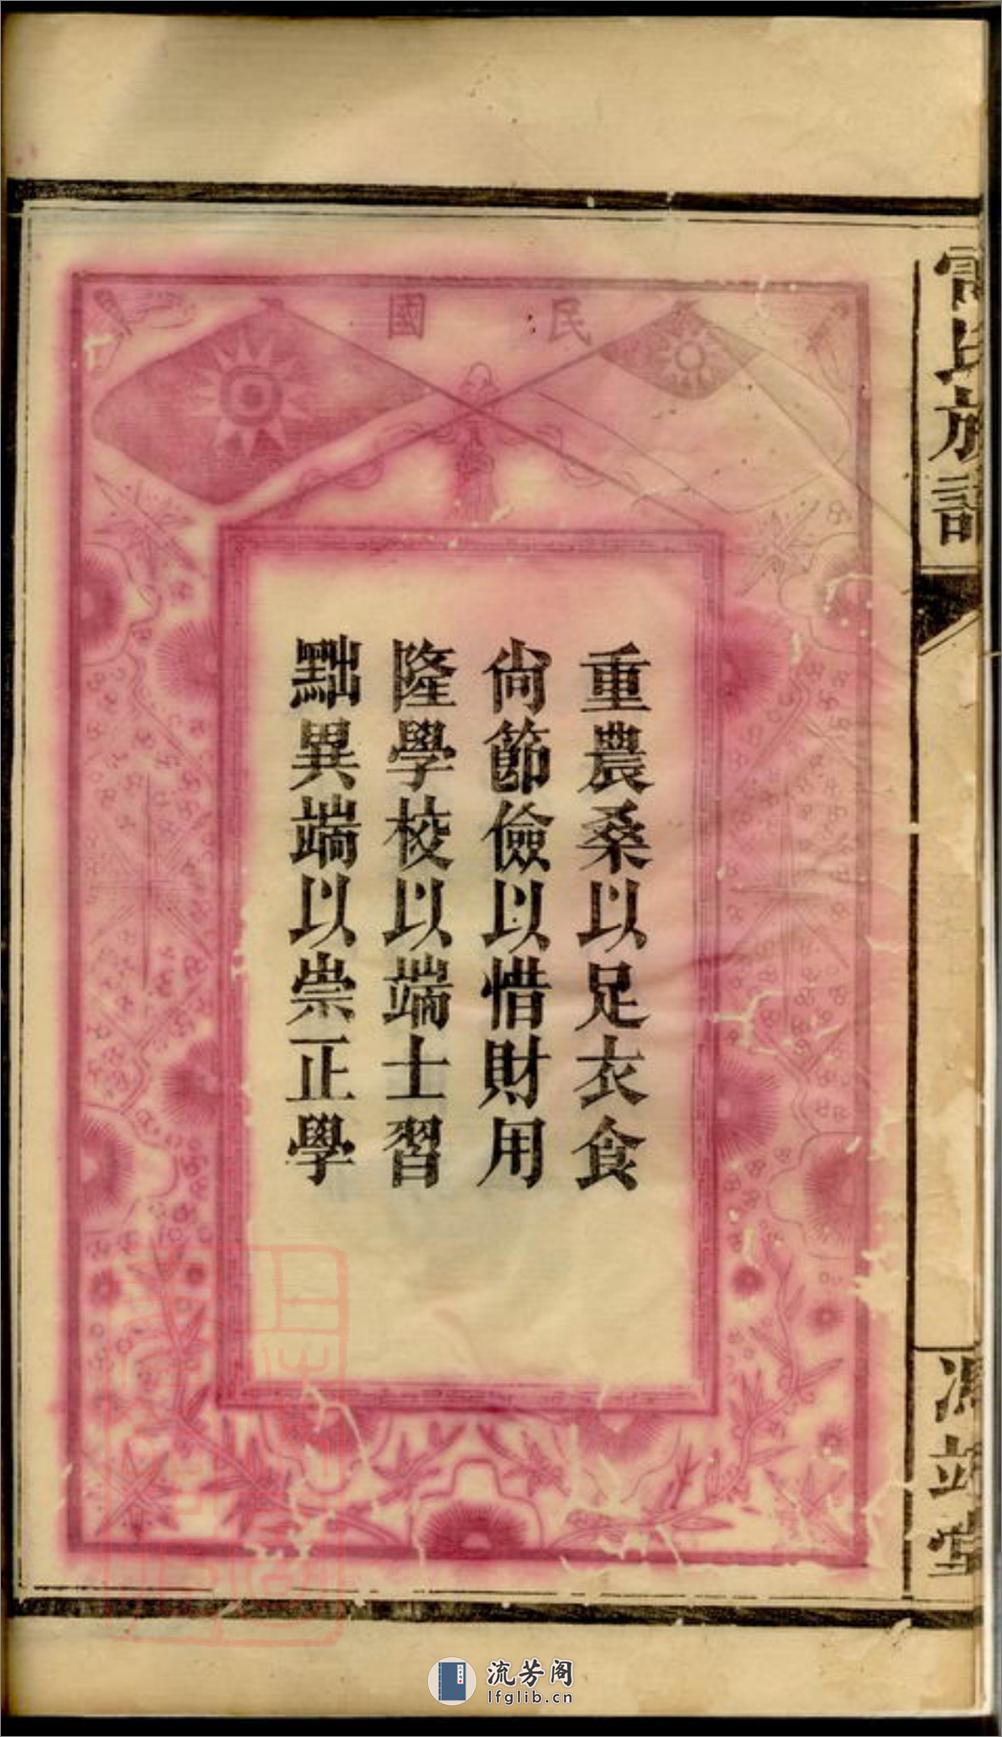 民國
重農桑以足衣食
尙節儉以惜財用
隆學校以端士習
黜異端以崇正學
氏族譜
堂
流芳阁
lfglib.cn